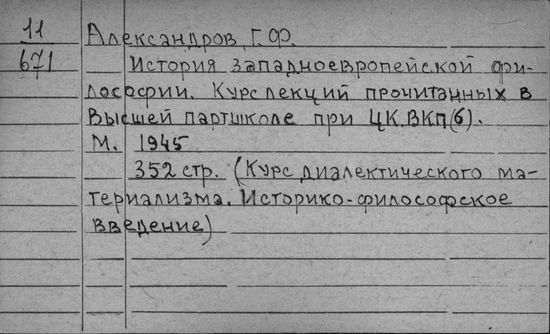 11
671
Александров, Г.Ф.
История западноевропейской фи-
лософии. Курс лекций прочитанных в
Высшей партшколе при ЦК ВКП(б).
М. 1945
352 стр. (Курс диалектического ма-
териализма. Историко-философское
введение)